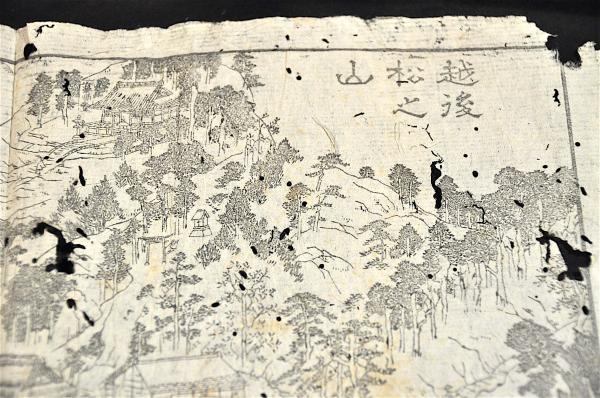 越後
松之
山